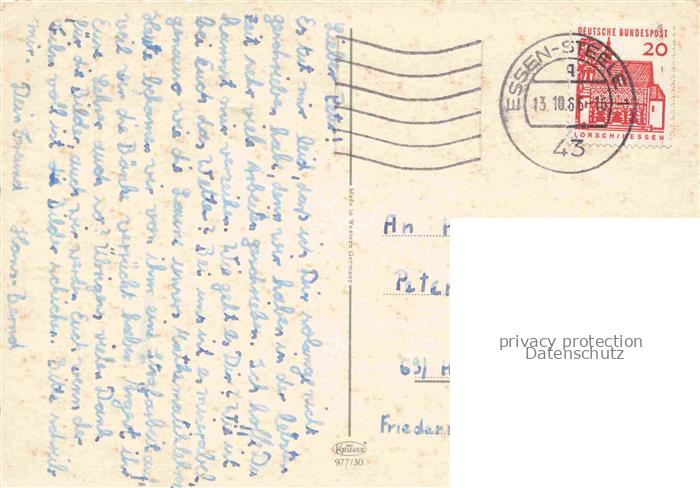 Lieber Peter!
Es tut mir leid, dass ich Dir solange nicht
geschrieben habe, denn wir haben in der letzten
Zeit sehr viele Arbeiten geschrieben. Ich hoffe Du
kannst mir verzeihen. Wie geht es Dir? Wie ist
bei Euch das Wetter? Bei uns ist es miserabel
genau so wie die Laune unres Mathematiklehrers
Heute bekamen wir von ihm eine Strafarbeit auf
weil wir eine Büste verrückt haben. Ärgert ihr
Eure Lehrer auch so? Übrigens vielen Dank
für die Bilder, auch wir werden Euch wenn der
Film voll ist die Bilder schicken. Bitte schreib
mir. Dein Freund Hans-Bernd
Made in Western Germany
DEUTSCHE BUNDESPOST
20
LORSCH/HESSEN
ESSEN-STEELE
q
13.10.66-18
43
An
Peter
69/ H
Frieder
KRÜGER
977/30
privacy protection
Datenschutz